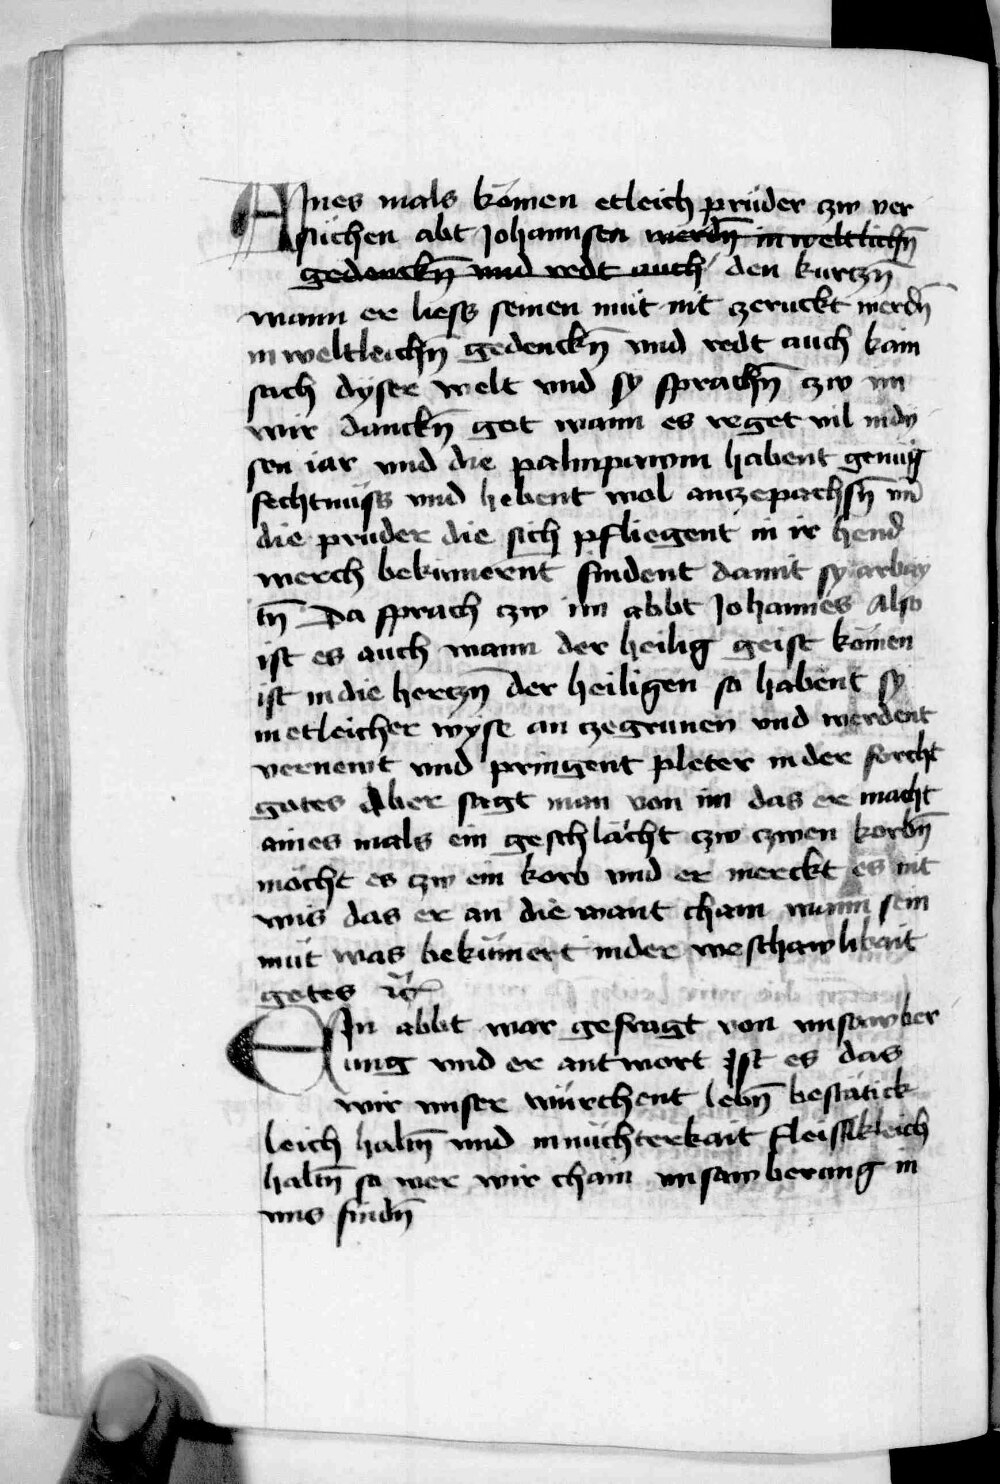 Aines mals kömen etleich prüder czw ver
süchen abt Johannsen werdn̄ in weltlichn̄
gedenckn̄ vnd redt auch den kurtzn̄
wann er liess seinen müt nit zeruckt werdn̄
in weltleichn̄ gedenckn̄ vnd redt auch kain
sach dyser welt vnd sy sprachn̄ czw im
wir danckn̄ got wann es reget vil in dy
sen iar vnd die palmpawm habent genüg
fechtnüss vnd hebent wol anzepachsn̄ vn̄
die prüder die sich pfliegent in ir hend
werch bekümernt findent damit sy arbay
tn̄ Da sprach czw im abbt Johannes Also
ist es auch wann der heilig geist kömen
ist in die hertzn̄ der heiligen so habent sy
in etleicher wyse an czegrunen vnd werdent
vernewt vnd pringent pleter in der forcht
gotes Aber sagt man von im das er macht
aines mals ein geschlächt czw czwen korbn̄
möcht es czw ein korb vnd er merckt es nit
uns das er an die want cham wann sein
müt was bekümert in der weschawlikait
gotes ꝛc̄
Ein abbt war gefragt von vnsawber
ung vnd er antwort Ist es das
wir vnser würchent lebn̄ bestätick
leich haltn̄ vnd in nüchterkait fleissikleich
haltn̄ so wer wir chain vnsawberung in
vns findn̄